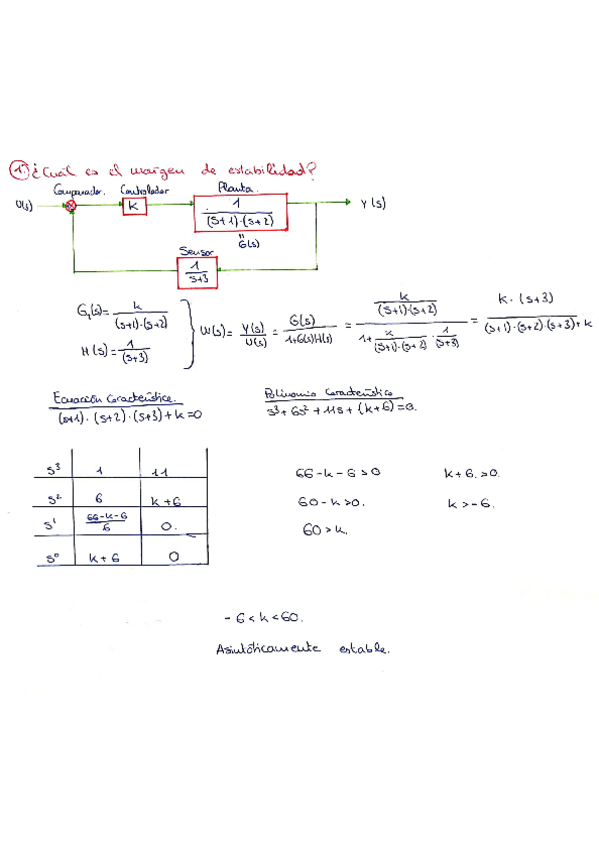 1. ¿Cuál es el margen de estabilidad?
Comparador. Controlador Planta.
U(s) K 1/((s+1)·(s+2)) Y(s)
"
G(s)
Sensor
1/(s+3)
G₁(s)= k/((s+1)·(s+2))
H(s)= 1/(s+3)
W(s)= Y(s)/U(s) = G(s)/(1+G(s)H(s)) = (k/((s+1)·(s+2)))/(1+ k/((s+1)·(s+2)) · 1/(s+3)) = k·(s+3)/((s+1)·(s+2)·(s+3)+k)
Ecuación Característica. Polinomio Característico
(s+1)·(s+2)·(s+3)+k=0 s³+6s²+11s+(k+6)=0.
s³ 1 11
s² 6 k+6
s¹ (66-k-6)/6 0.
s⁰ k+6 0
66-k-6>0 k+6>0.
60-k>0. k>-6.
60>k.
-6<k<60.
Asintóticamente estable.